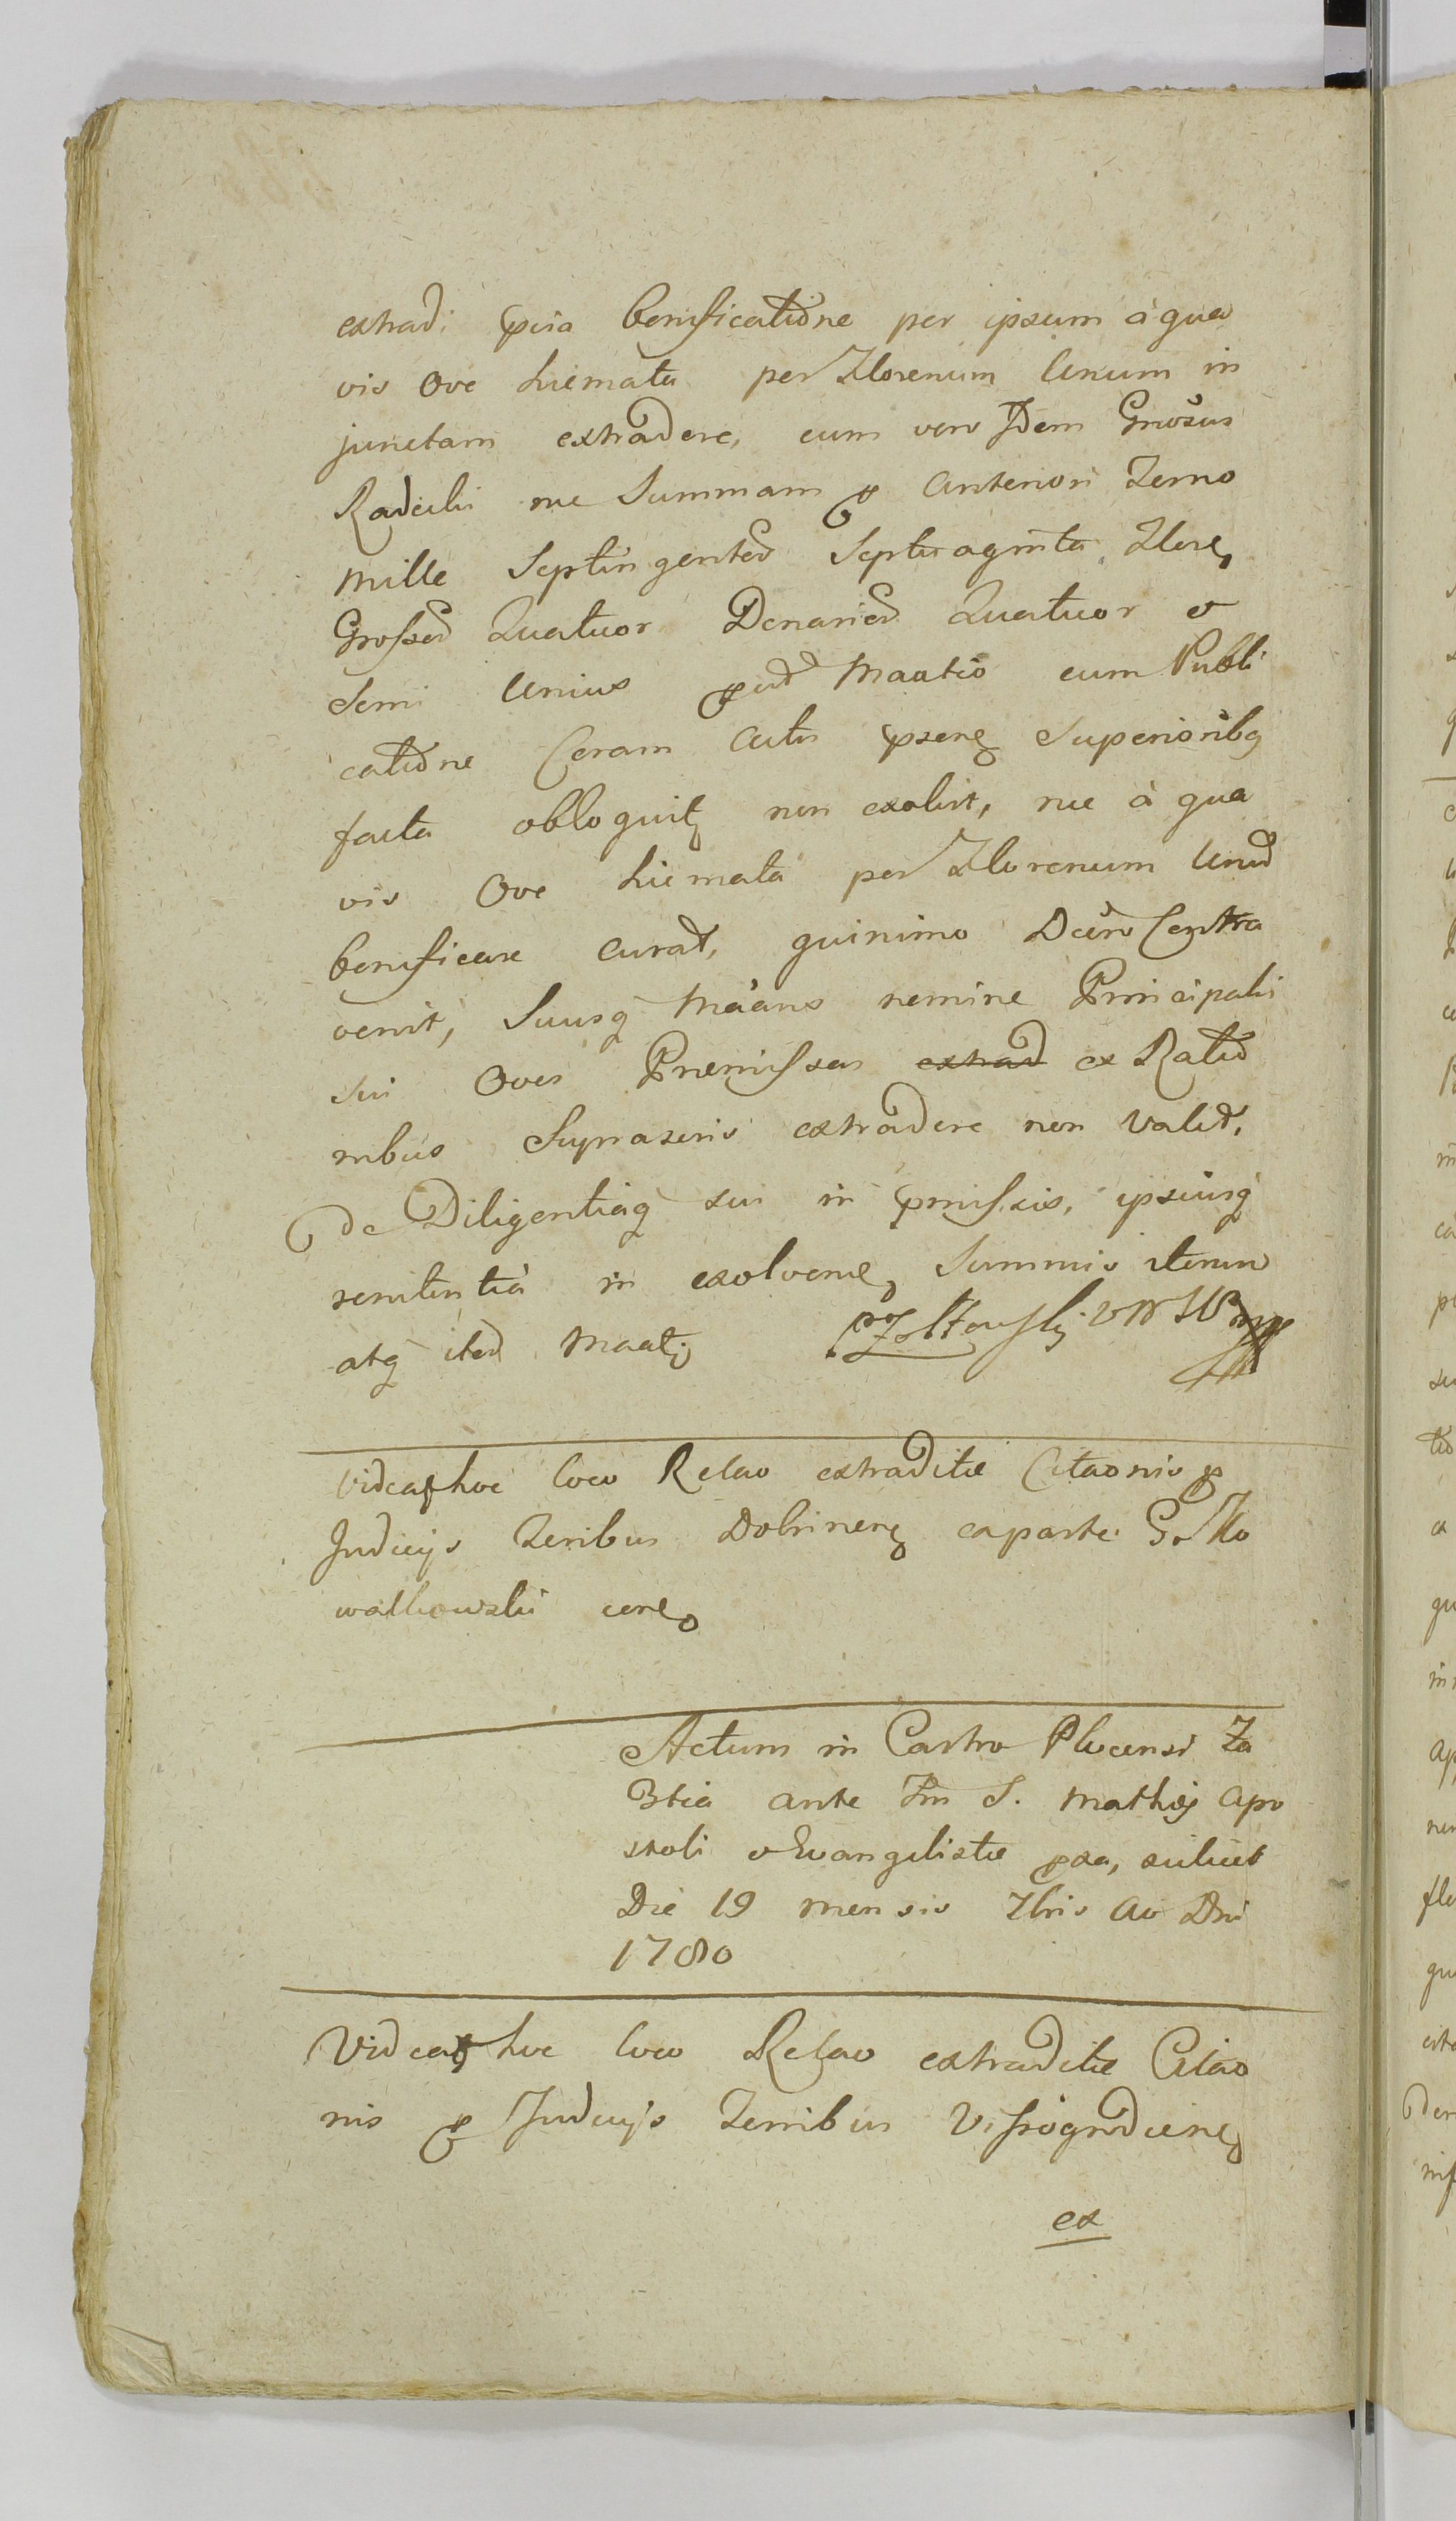 extradi pvia bonificatione per ipsum à qua
vis Ove hiemata per Florenum Unum in
junctam extradere, cum vero Idem Gnosus
Radicki nec Summam p Anteriori Termo
Mille Septingentos Septuaginta, Floren
Grossos Quatuor Denarios Quatuor et
Semi Unius Maatio cum Publi
catione Coram Actis psenq Superioribq
facta obloquitq non exolvit, nec à qua
vis Ove hiemata per Florenum Unum
bonificare curat, quinimo Decreto Contra
venit, Suusq Maans nomine Principalis
sui Oves Premissas extrad ex Ratio
nibus Suprascris extradere non valet,
De Diligentiaq sui in pmissis, ipsiusq
renitentia in exolvene, Summis iterum
atq iterum Maatq
Videatq hoc loco Relao extraditæ Citaonis p
Judicijs Terribus Dobrinenq ex parte G. Ko
walkowski conec
Actum in Castro Plocensi Fa
3tia ante Fm S. Mathæi Apo
stoli et Evangelistæ pxa, scilicet
Die 19 mensis 7bris Ao Dni
1780
Videatq hoc loco Relao extraditæ Citao
nis p Judicijs Terribus Vissogrodienq
ex